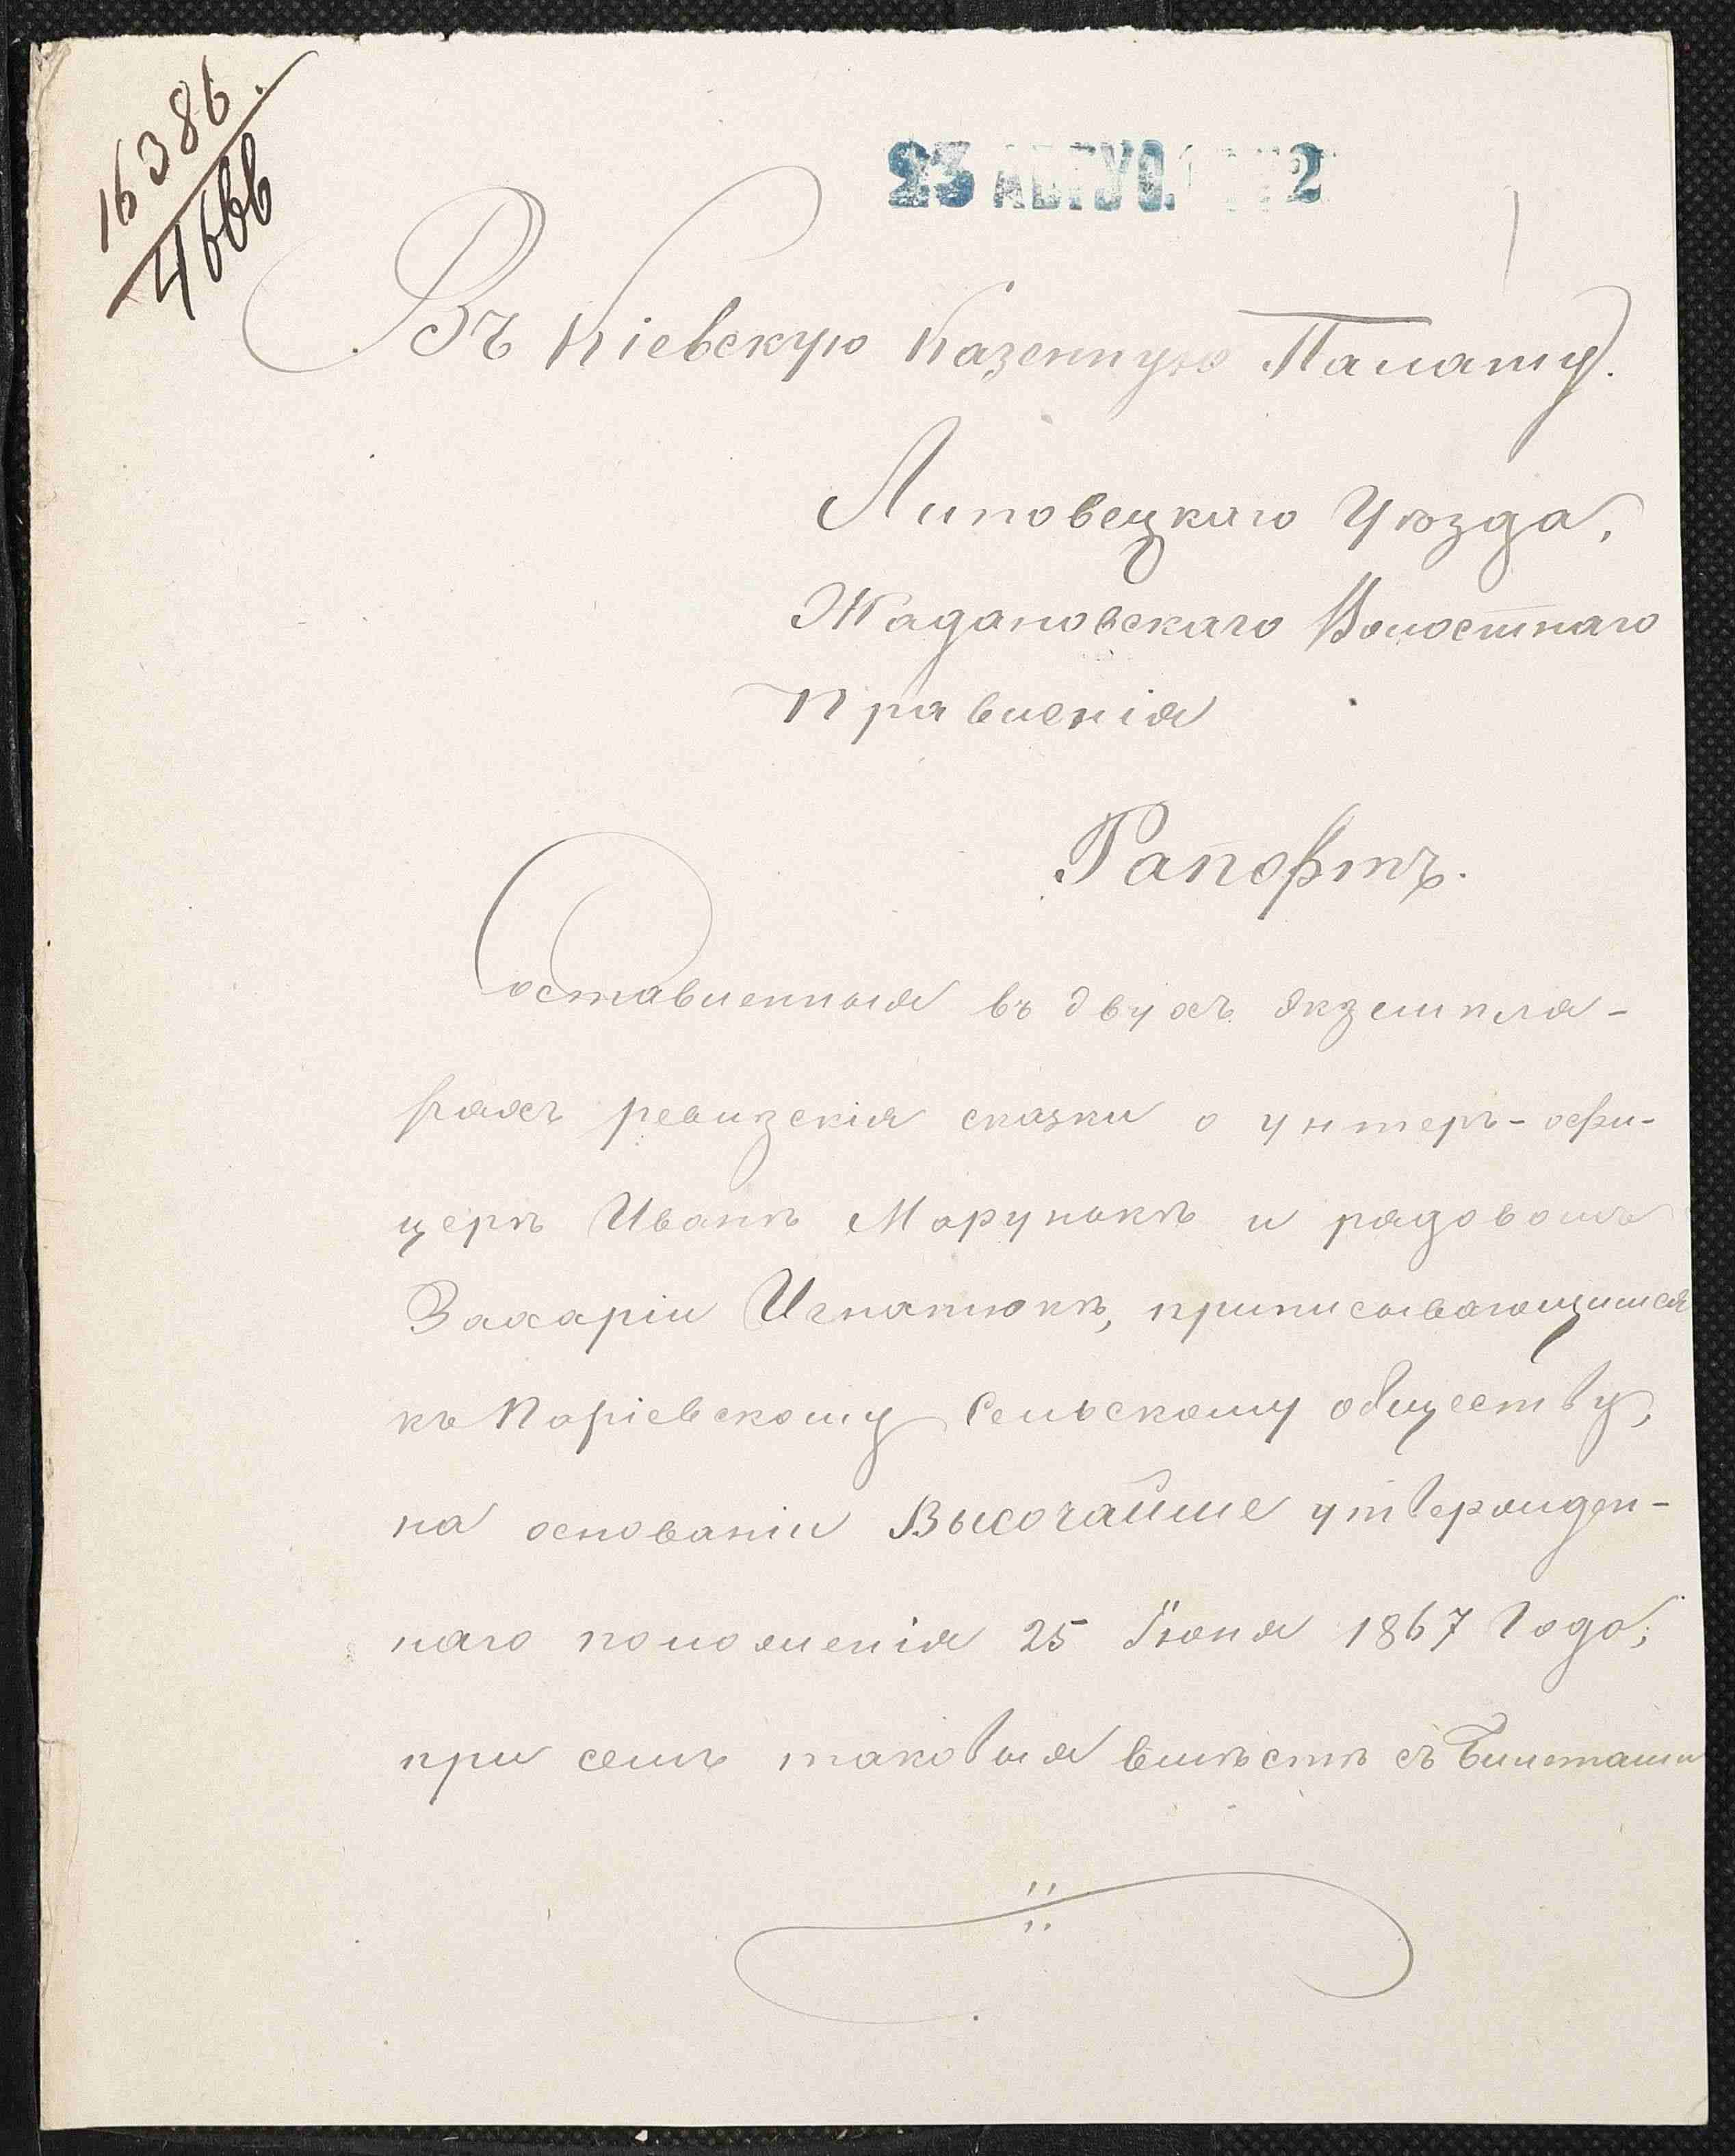 16386.
4666
23 АВГУС. 2
Въ Кіевскую Казенную Палату.
Липовецкаго Уѣзда,
Жадановскаго Волостнаго
Правленія
Рапортъ.
Составленныя въ двухъ экземпля-
рахъ ревизскія сказки о унтеръ-офи-
церѣ Иванѣ Марунькѣ и рядовомъ
Захаріи Игнатюкѣ, приписывающимся
къ Паріевскому Сельскому обществу,
на основаніи Высочайше утвержден-
наго положенія 25 Іюня 1867 года,
при семъ таковыя вмѣстѣ съ Билетами